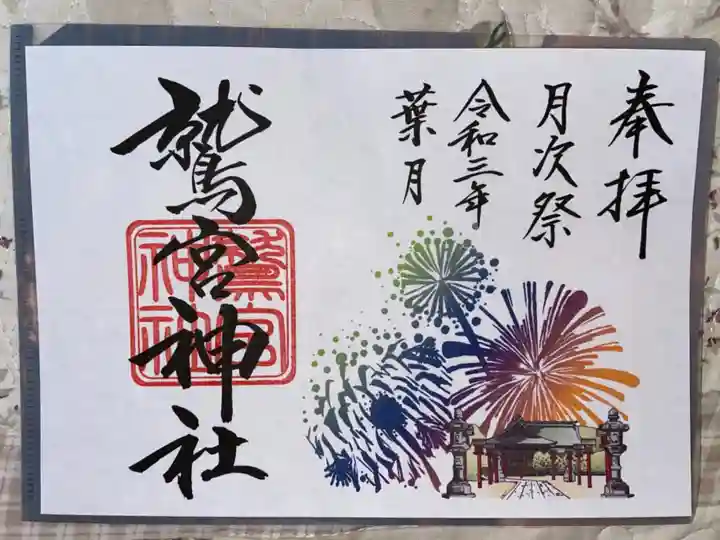 奉拝
月次祭
令和三年
葉月
鷲宮神社
鷲宮
神社